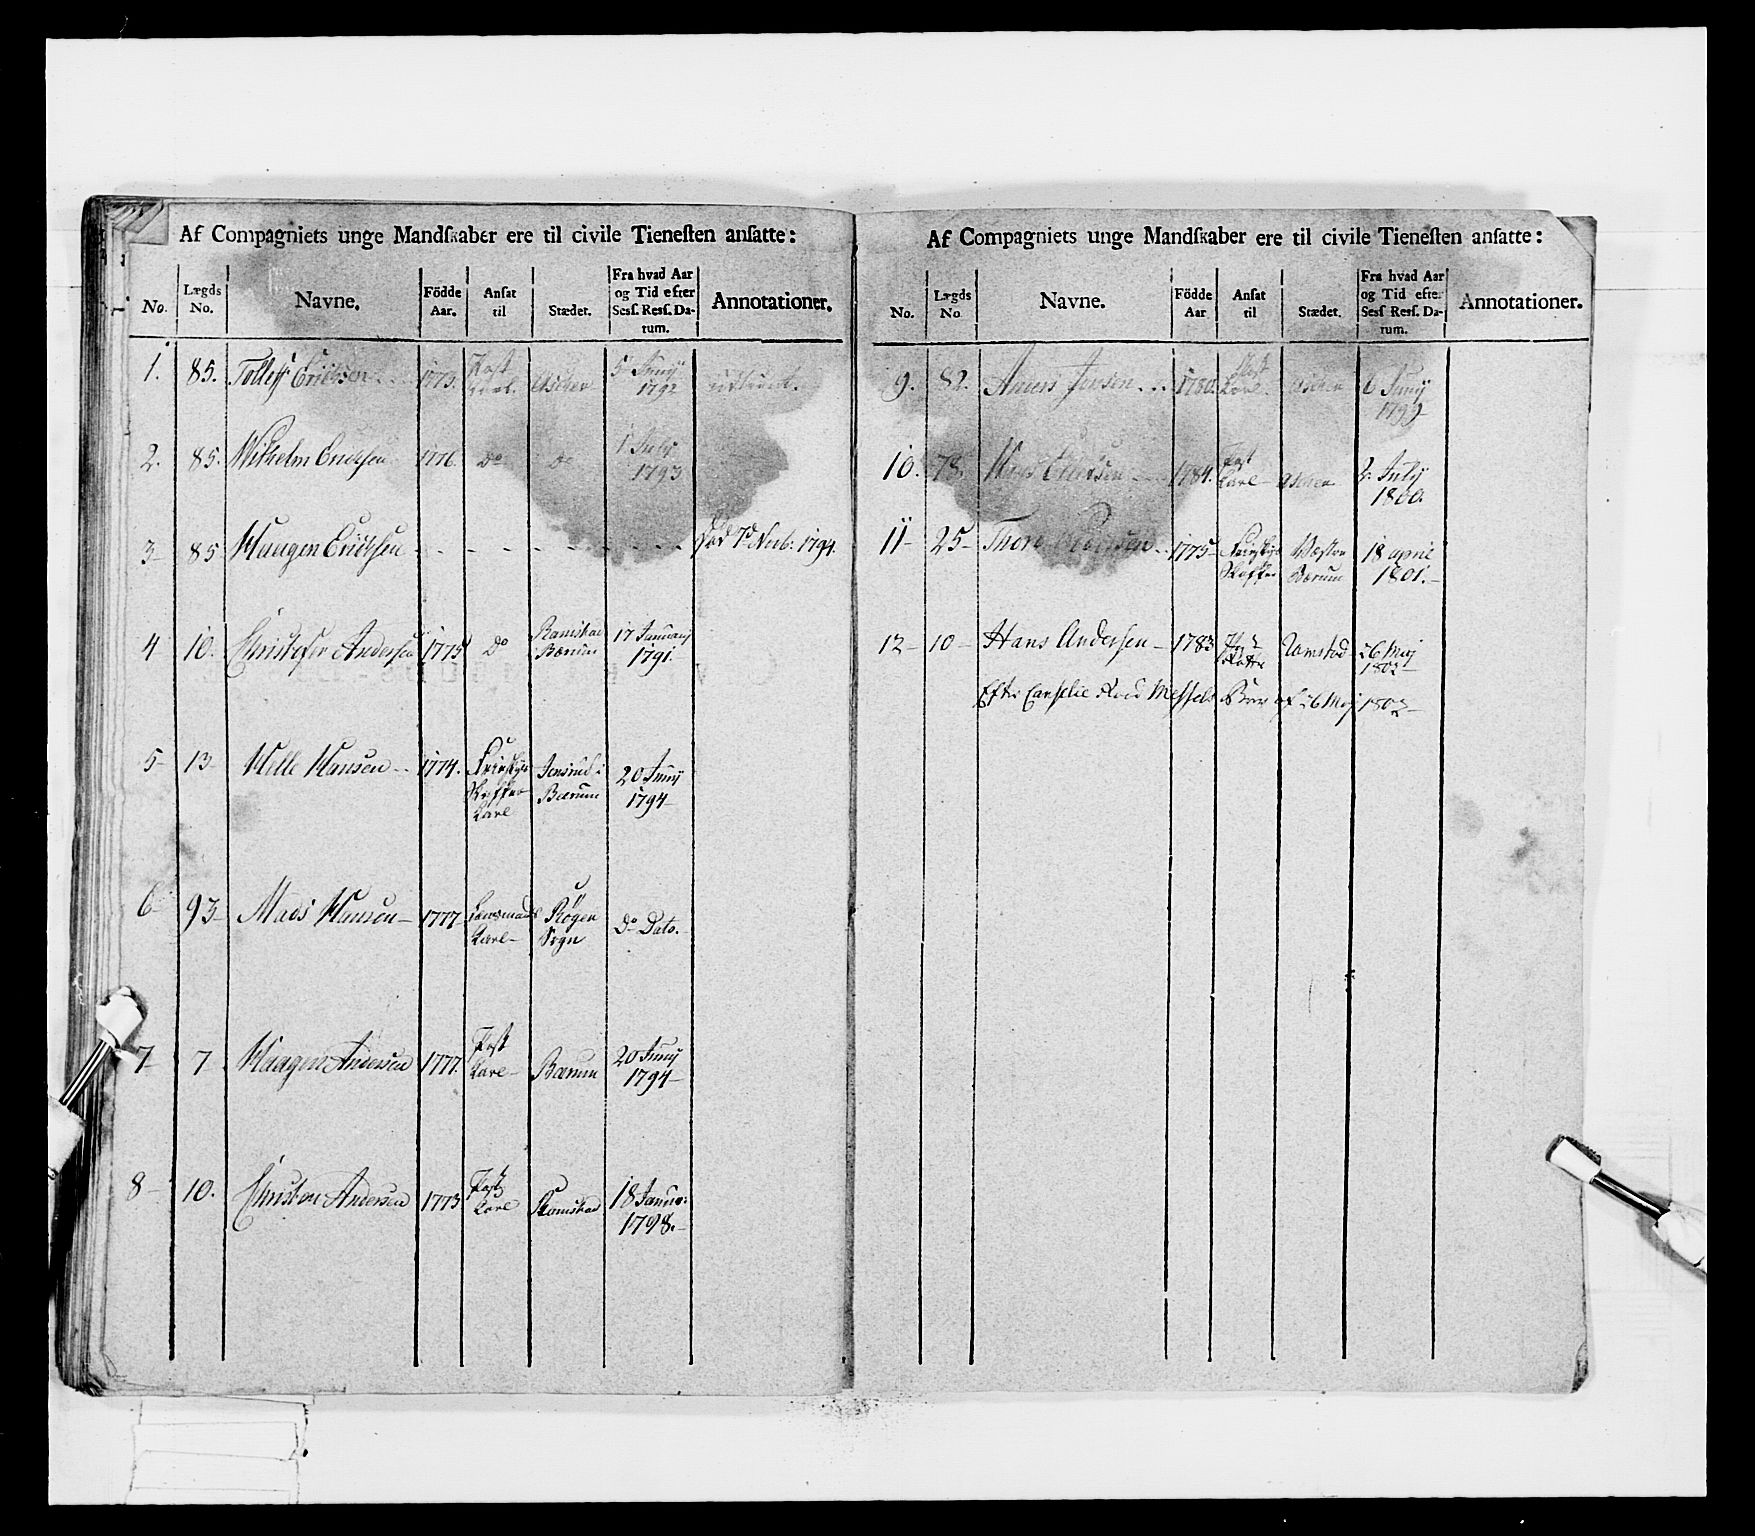 Af Compagniets unge Mandskaber ere til civile Tienesten ansatte:
No. Lægds No. Navne. Födde Aar. Ansat til Stædet. Fra hvad Aar og Tid efter Sess. Ress. Datum. Annotationer.
1. 85. Tolleff Erichsen 1773. Post Karl Aschen 5 Junij 1792 udtient.
2. 85. Wilhelm Erichsen 1776. do do 1 July 1793
3 - 85 Haagen Erichsen - - - - - - - - - - død 7de Novb: 1794.
4 10. Christofer Andersen 1775 do Ramstad Bærum 17 January 1791.
5 - 13 Helle Hansen - - 1774. Karl Jensrud i Bærum 20 Junij 1794 -
6 - 93 - Mads Hansen - 1777 - Lensmands Karl - Røgen Sogn do Dato.
7 - 7 Haagen Andersen 1777. Post Karl - Bærum 20 Junij 1794 -
8 - 10. Christen Andersen 1773 Post Karl Ramstad 18 Januar: 1798. -
Af Compagniets unge Mandskaber ere til civile Tienesten ansatte:
No. Lægds No. Navne. Födde Aar Ansat til Stædet. Fra hvad Aar og Tid efter Sess Ress. Datum. Annotationer.
9. 82. Anders Jensen . . . 1780. Post Karl Aschen 6 Junij 1799
10. 78. 1784. Post Karl - Aschen 2. July 1800.
11 - 25 - Thore 1775 - Skaffer Wæstre Bærum 18 april 1801. -
12 - 10 - Hans Andersen - 1783 Post Ramstad 26 Maij 1802 -
Efter Brev af 26 Maj 1802 -